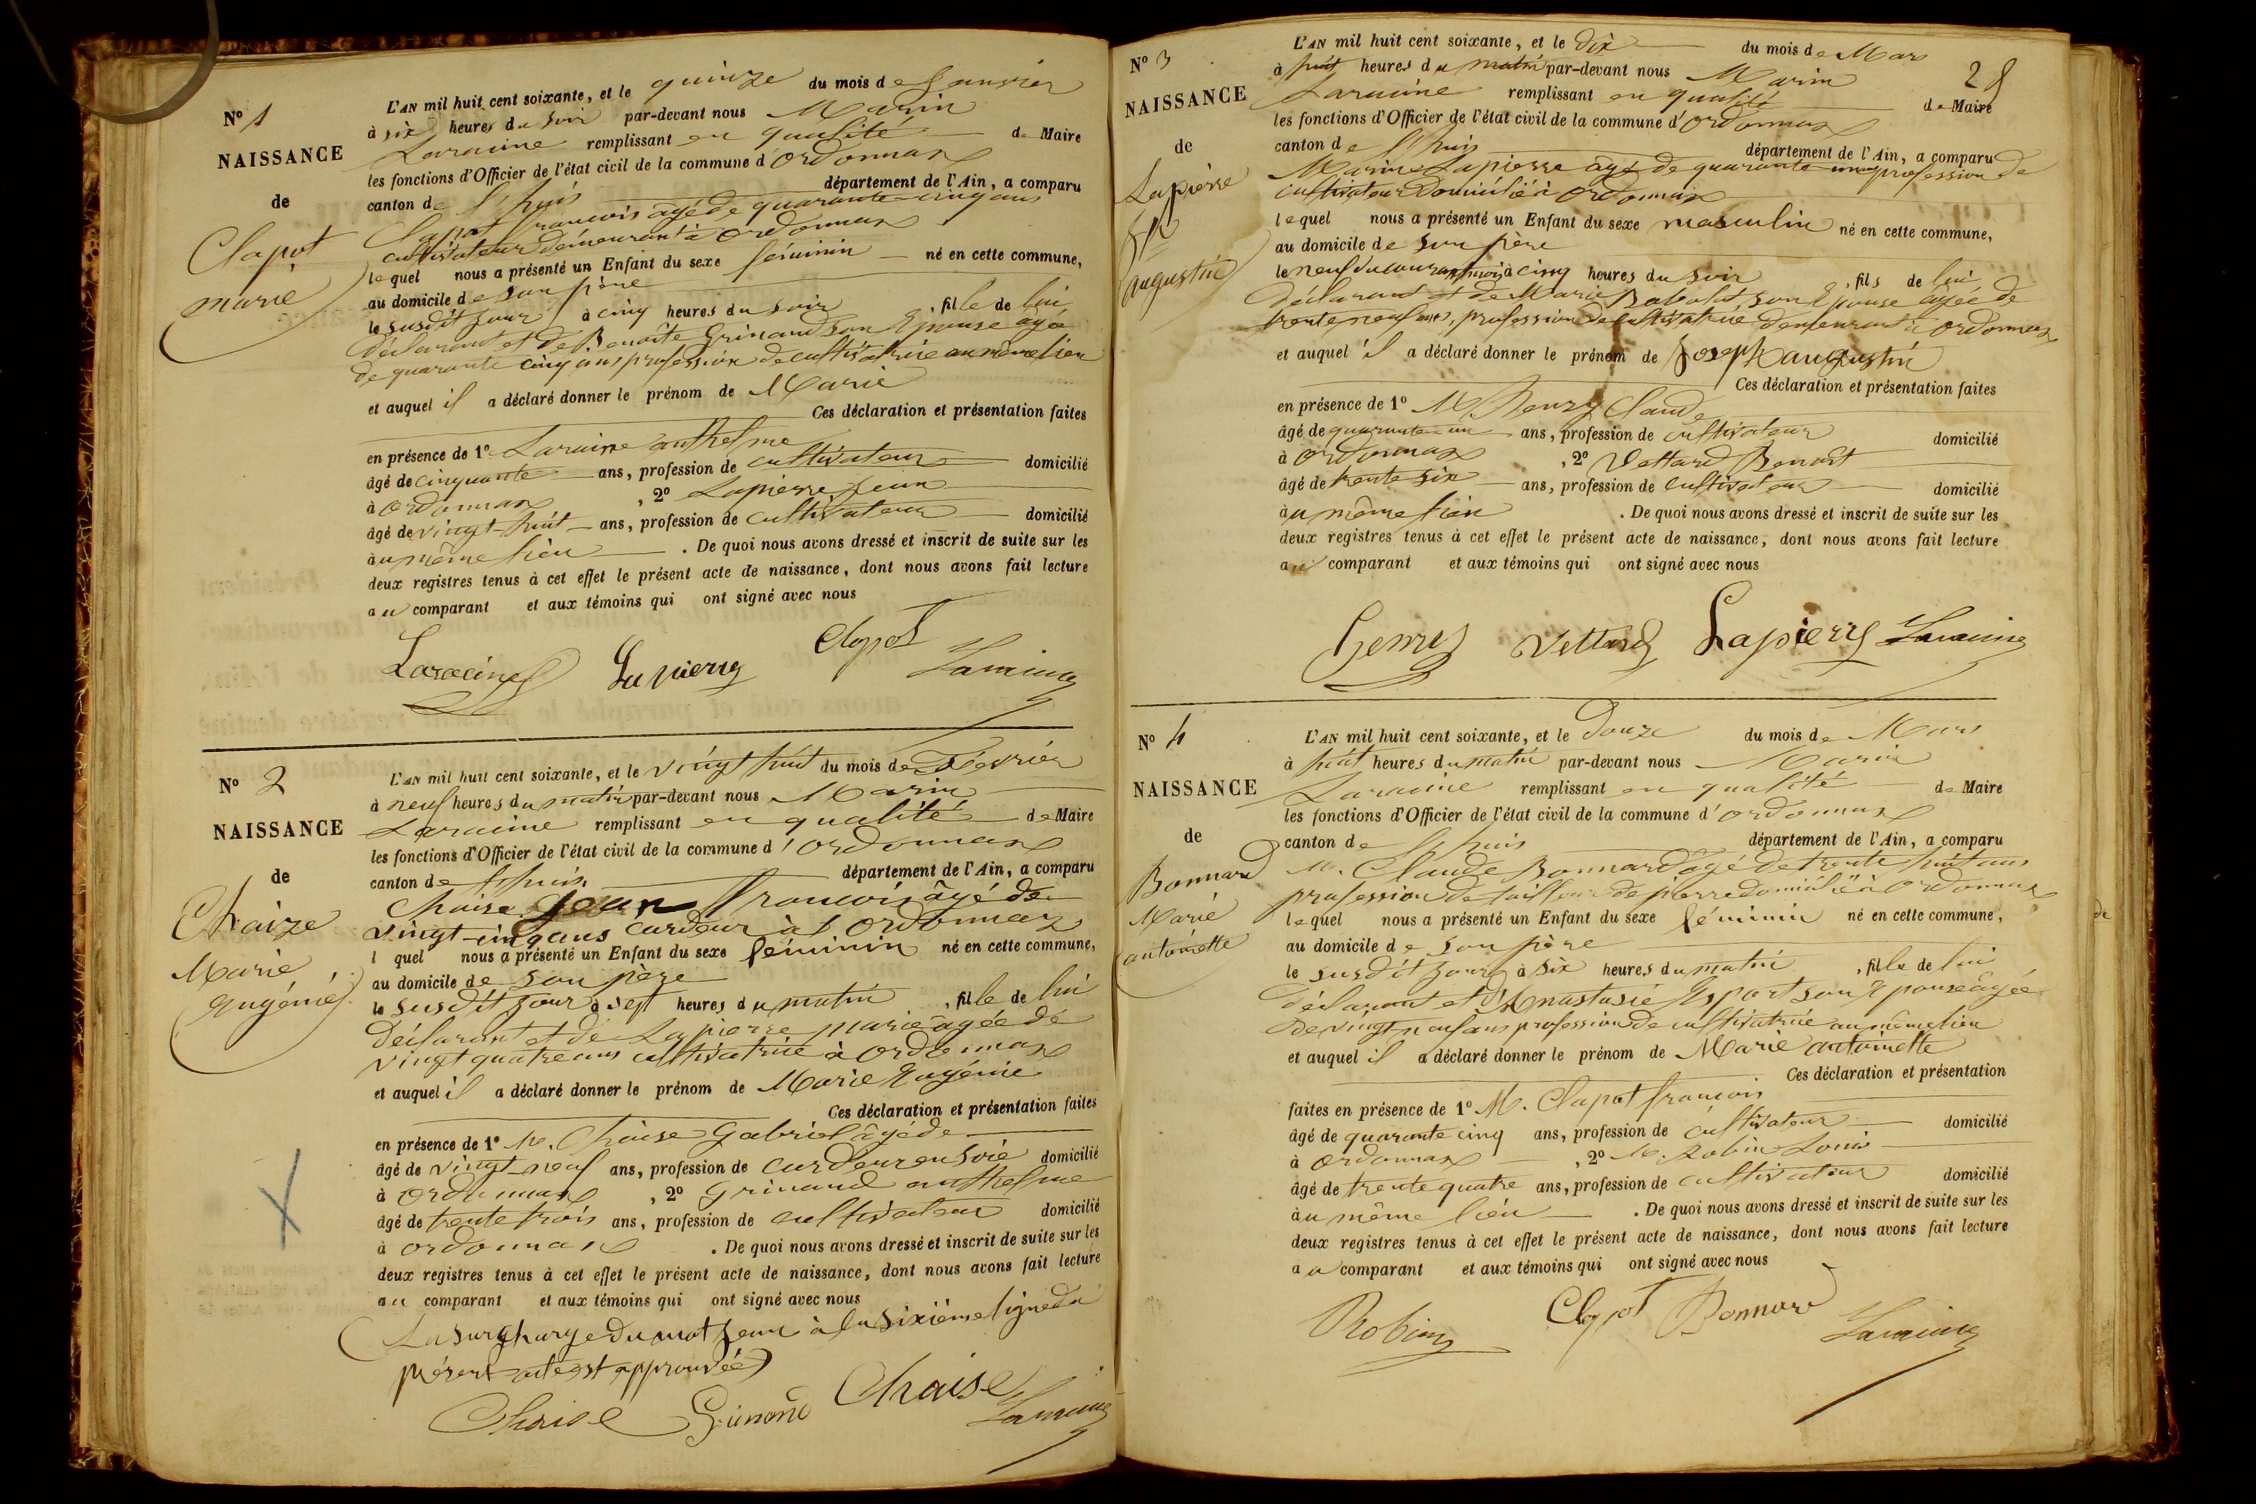 N° 1
NAISSANCE
de
Clapot
marie
L'AN mil huit cent soixante, et le quinze du mois de Janvier
à six heures du soir par-devant nous Marin
Laracine remplissant en qualité de Maire
les fonctions d'Officier de l'état civil de la commune d'ordonnax
canton de l'huis département de l'Ain, a comparu
Clapot francois âgé de quarante-cinq ans
cultivateur demeurant à ordonnax
lequel nous a présenté un Enfant du sexe féminin né en cette commune,
au domicile de son père
le susdit jour à cinq heures du soir, fille de lui
déclarant et de Benoîte Grinand son Epouse âgée
de quarante cinq ans profession de cultivatrice au même lieu
et auquel il a déclaré donner le prénom de Marie
Ces déclaration et présentation faites
en présence de 1° Laracine anthelme
âgé de cinquante ans, profession de cultivateur domicilié
à ordonnax, 2° Lapierre Jean
âgé de vingt-huit ans, profession de cultivateur domicilié
au même lieu. De quoi nous avons dressé et inscrit de suite sur les
deux registres tenus à cet effet le présent acte de naissance, dont nous avons fait lecture
au comparant et aux témoins qui ont signé avec nous
Laracine Lapierre Clapot Laracine
N° 2
NAISSANCE
de
Chaize
Marie
Eugénie
L'AN mil huit cent soixante, et le vingt huit du mois de Février
à neuf heures du matin par-devant nous Marin
Laracine remplissant en qualité de Maire
les fonctions d'Officier de l'état civil de la commune d'ordonnax
canton de l'huis département de l'Ain, a comparu
Chaise Jean francois âgé de
vingt-cinq ans cardeur à ordonnax
l quel nous a présenté un Enfant du sexe féminin né en cette commune,
au domicile de son père
le susdit jour à sept heures du matin, fille de lui
déclarant et de Lapierre marie âgée de
vingt quatre ans cultivatrice à ordonnax
et auquel il a déclaré donner le prénom de Marie Eugénie
Ces déclaration et présentation faites
en présence de 1° M. Chaise Gabriel âgé de
âgé de vingt-neuf ans, profession de cardeur en soie domicilié
à ordonnax, 2° Grinand anthelme
âgé de trente trois ans, profession de cultivateur domicilié
à ordonnax. De quoi nous avons dressé et inscrit de suite sur les
deux registres tenus à cet effet le présent acte de naissance, dont nous avons fait lecture
au comparant et aux témoins qui ont signé avec nous
(La surcharge du mot Jean à la sixième ligne du
présent acte est approuvée)
Chaise Grinand Chaise Laracine
28
N° 3
NAISSANCE
de
Lapierre
Jh
augustin
L'AN mil huit cent soixante, et le dix du mois de Mars
à huit heures du matin par-devant nous Marin
Laracine remplissant en qualité de Maire
les fonctions d'Officier de l'état civil de la commune d'ordonnax
canton de l'huis département de l'Ain, a comparu
Marin Lapierre âgé de quarante profession de
cultivateur domicilié à ordonnax
lequel nous a présenté un Enfant du sexe masculin né en cette commune,
au domicile de son père
le neuf du courant mois à cinq heures du soir, fils de lui
déclarant et de Marie son Epouse âgée de
trente neuf ans, profession de cultivatrice demeurant à ordonnax
et auquel il a déclaré donner le prénom de Joseph augustin
Ces déclaration et présentation faites
en présence de 1° M. henry Claude
âgé de quarante-un ans, profession de cultivateur domicilié
à ordonnax, 2° Vettard Benoit
âgé de trente-six ans, profession de cultivateur domicilié
au même lieu. De quoi nous avons dressé et inscrit de suite sur les
deux registres tenus à cet effet le présent acte de naissance, dont nous avons fait lecture
au comparant et aux témoins qui ont signé avec nous
henry Vettard Lapierre Laracine
N° 4
NAISSANCE
de
Bonnard
Marie
antoinette
L'AN mil huit cent soixante, et le Douze du mois de Mars
à huit heures du matin par-devant nous Marin
Laracine remplissant en qualité de Maire
les fonctions d'Officier de l'état civil de la commune d'ordonnax
canton de l'huis département de l'Ain, a comparu
M. Claude Bonnard âgé de trente huit ans
profession de tailleur de pierre domicilié à ordonnax
lequel nous a présenté un Enfant du sexe féminin né en cette commune,
au domicile de son père
le susdit jour à six heures du matin, fille de lui
déclarant et d'Anastasie son Epouse âgée
de vingt neuf ans profession de cultivatrice au même lieu
et auquel il a déclaré donner le prénom de Marie antoinette
Ces déclaration et présentation
faites en présence de 1° M. Clapot francois
âgé de quarante cinq ans, profession de cultivateur domicilié
à ordonnax, 2° M. Robin Louis
âgé de trente quatre ans, profession de cultivateur domicilié
au même lieu. De quoi nous avons dressé et inscrit de suite sur les
deux registres tenus à cet effet le présent acte de naissance, dont nous avons fait lecture
au comparant et aux témoins qui ont signé avec nous
Robin Clapot Bonnard Laracine